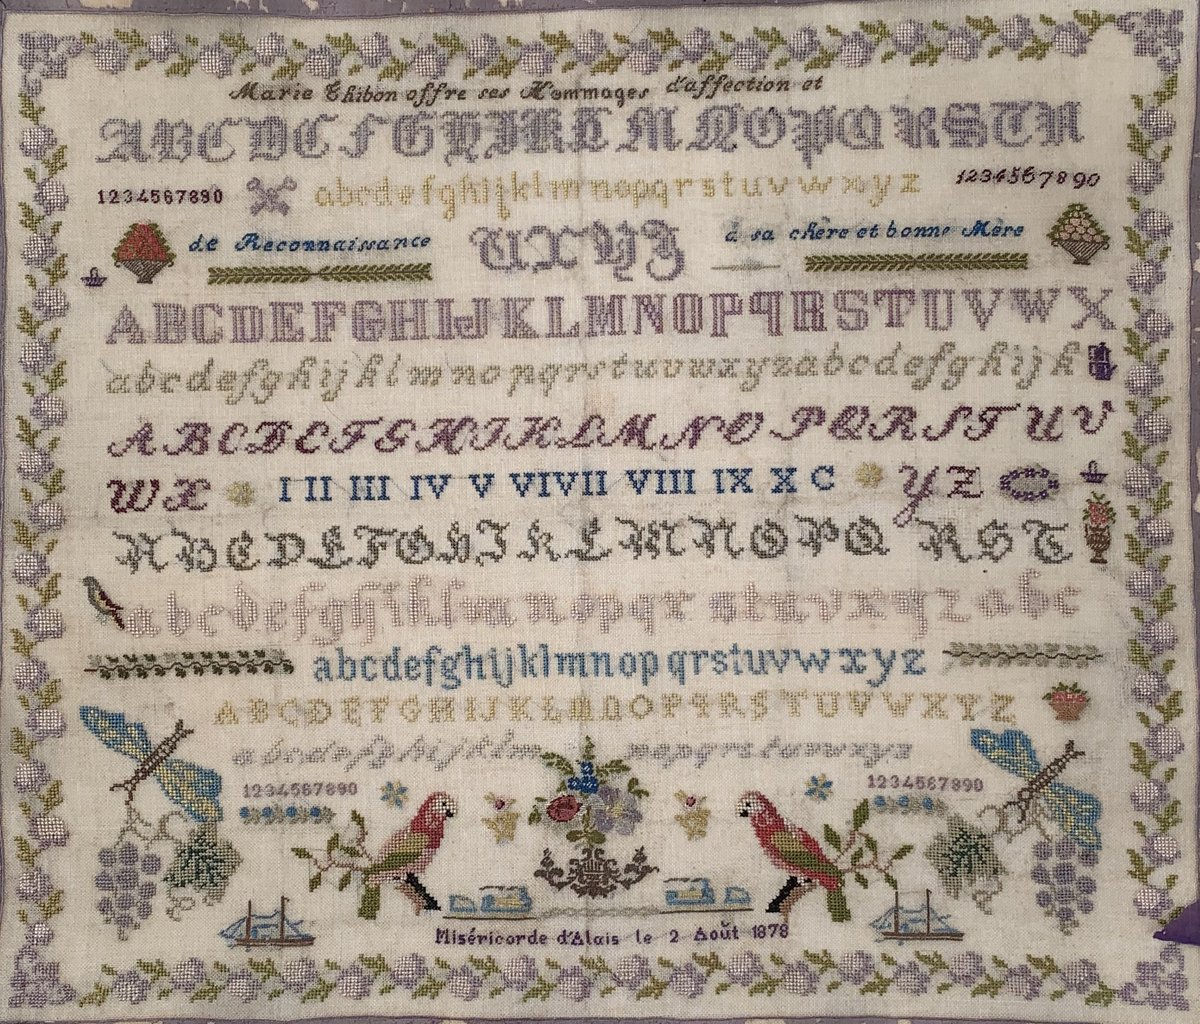 Marie Thibon offre ses Hommages d'affection et
ABCDEFGHIKLMNOPQRSTU
1234567890 abcdefghijklmnopqrstuvwxyz 1234567890
de Reconnaissance UXYZ à sa chère et bonne Mère
ABCDEFGHIJKLMNOPqRSTUVWX
abcdefghijklmnopqrstuvwxyzabcdefghijk
ABCDEFGHIKLMNOPQRSTUV
WX I II III IV V VIVII VIII IX X C YZ
ABCDEFGHIKLMNOPQ RST
abcdefghiklmnopqr stuvxyz abc
abcdefghijklmnopqrstuvwxyz
ABCDEFGHIJKLMNOPqRSTUVWXYZ
abcdefghijklm nopqrstuvwxyz
1234567890 1234567890
Miséricorde d'Alais le 2 Août 1878